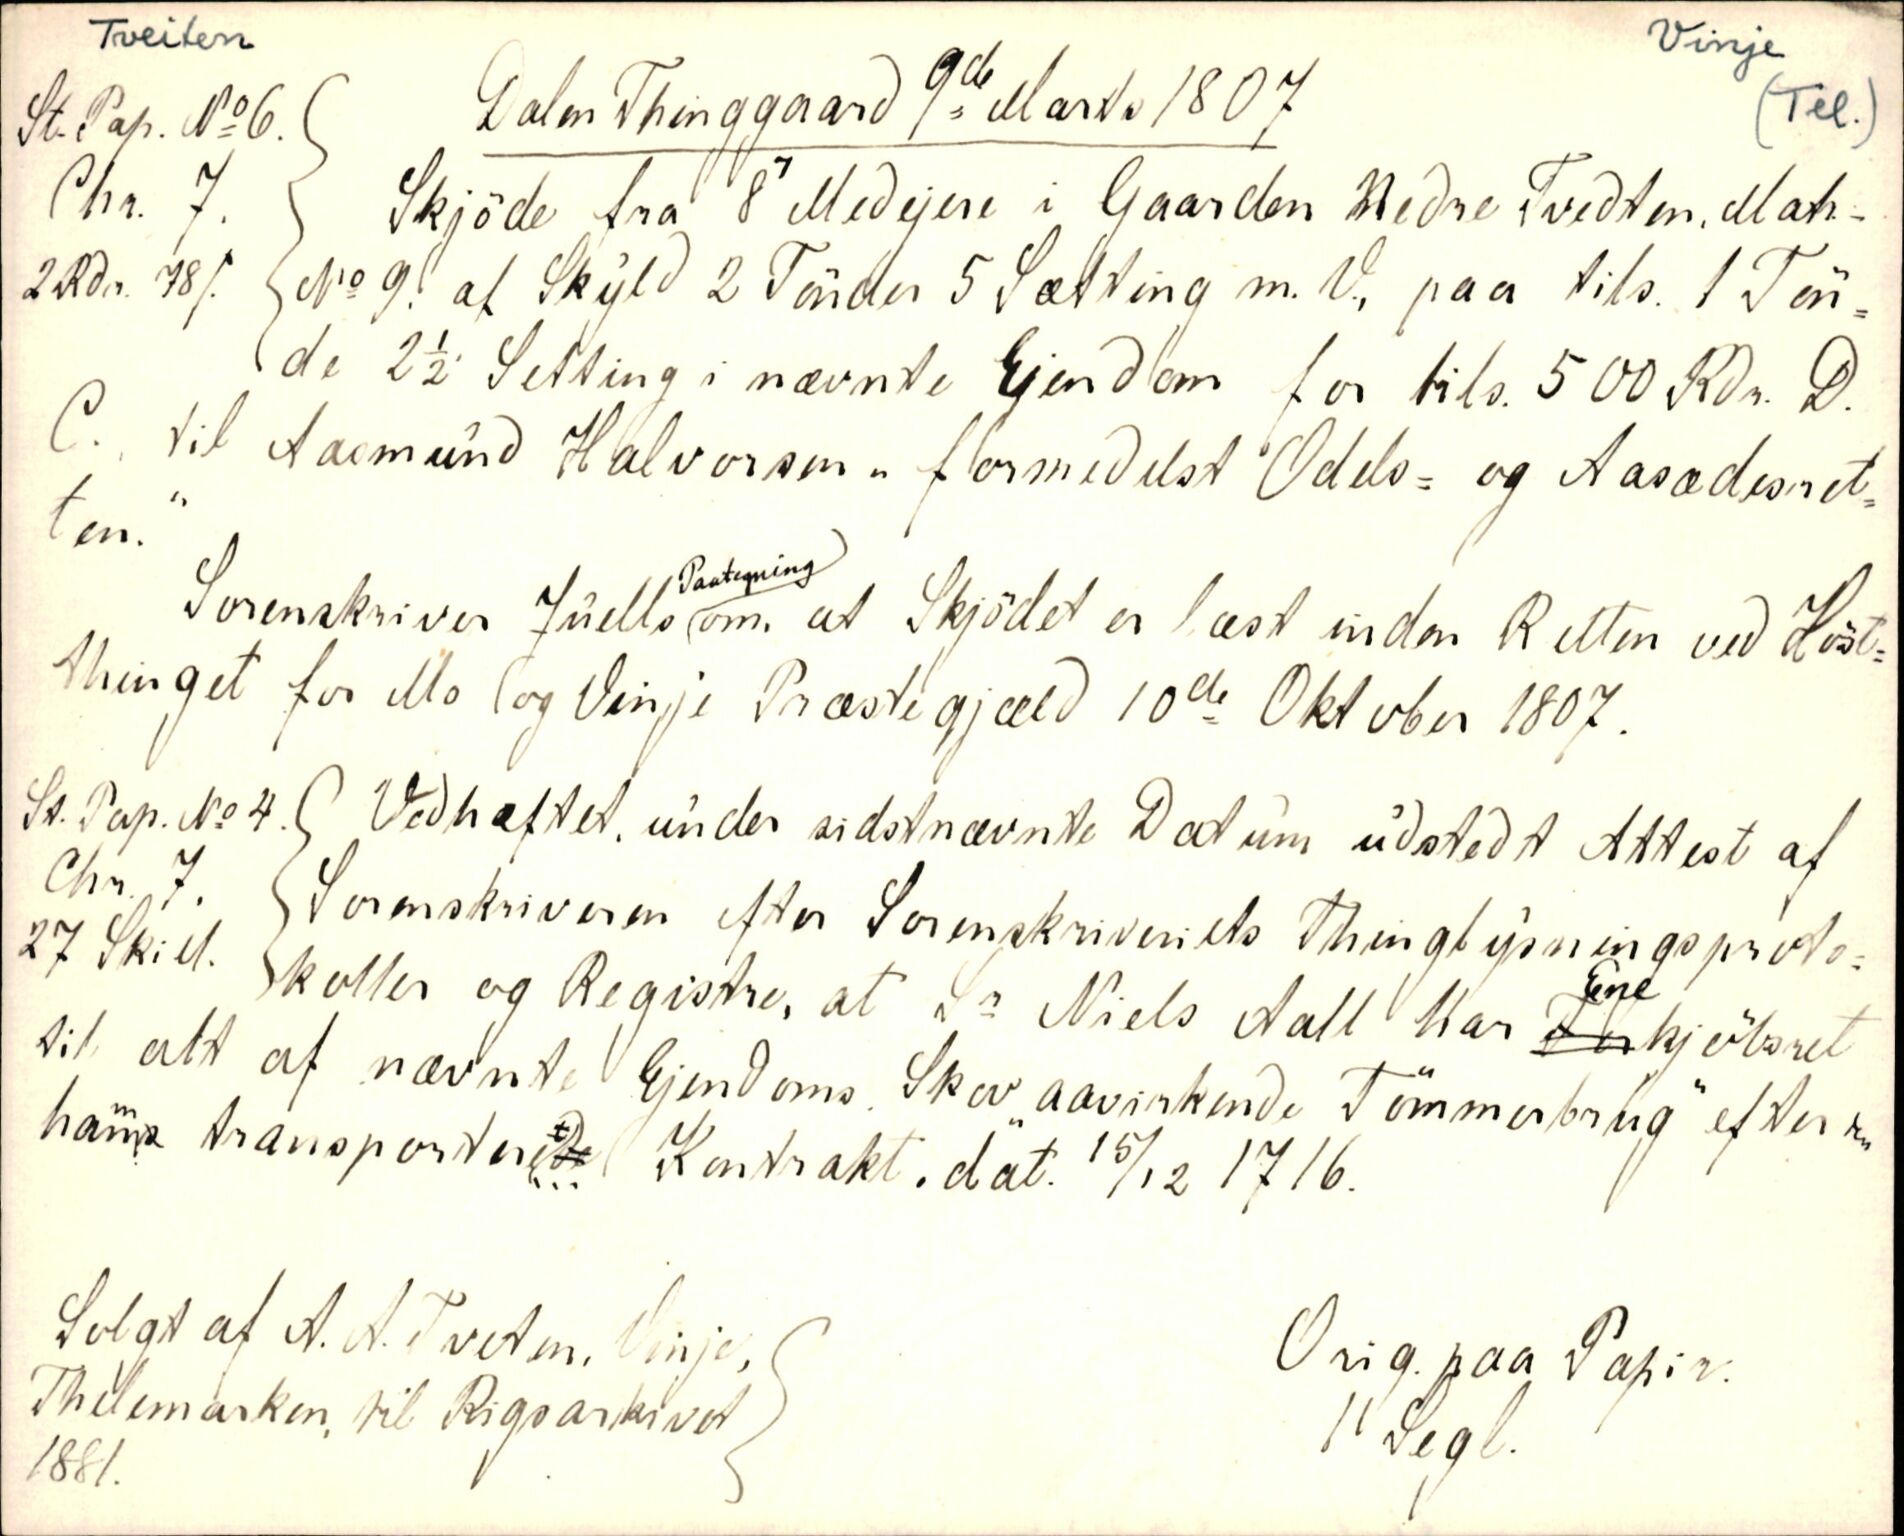 Tveiten
Vinje
(Tel.)
Dalen Thinggaard 9de Marts 1807
St. Pap. No 6.
Chr. 7.
2 Rdr. 78 s.
Skjöde fra 8 Medejere i Gaarden Nedre Tvedten, Matr.-
No 9. af Skyld 2 Tönder 5 Sætting m. V., paa tils. 1 Tön=
de 2½ Setting i nævnte Ejendom for tils. 500 Rdr. D.
C., til Aasmund Halvorsen „formedelst Odels= og Aasædesret=
ten."
Sorenskriver Juells Paategning om, at Skjödet er læst inden Retten ved Höst=
thinget for Mo og Vinje Præstegjæld 10de Oktober 1807.
St. Pap. No 4.
Chr. 7.
27 Skill.
Vedhæftet, under sidstnævnte Datum udstedt Attest af
Sorenskriveren efter Sorenskriveriets Thinglysningsproto=
koller og Registre, at Sr Niels Aall har Enekjöbsret
til alt af nævnte Ejendoms Skov „aavirkende Tömmerbrug" efter en
ham transporteret Kontrakt, dat. 15/12 1716.
Solgt af A. A. Tveten, Vinje,
Thelemarken, til Rigsarkivet
1881.
Orig. paa Papir.
1 Segl.